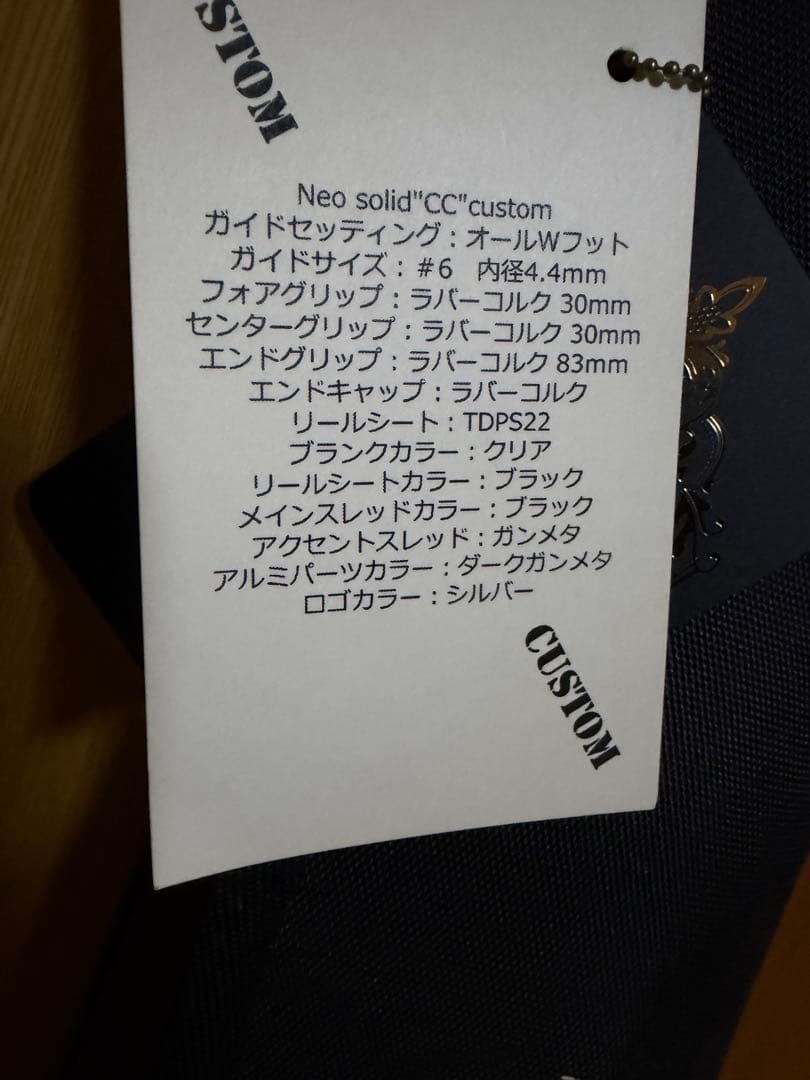 STOM
Neo solid"CC"custom
ガイドセッティング：オールWフット
ガイドサイズ：#6　内径4.4mm
フォアグリップ：ラバーコルク 30mm
センターグリップ：ラバーコルク 30mm
エンドグリップ：ラバーコルク 83mm
エンドキャップ：ラバーコルク
リールシート：TDPS22
ブランクカラー：クリア
リールシートカラー：ブラック
メインスレッドカラー：ブラック
アクセントスレッド：ガンメタ
アルミパーツカラー：ダークガンメタ
ロゴカラー：シルバー
CUSTOM